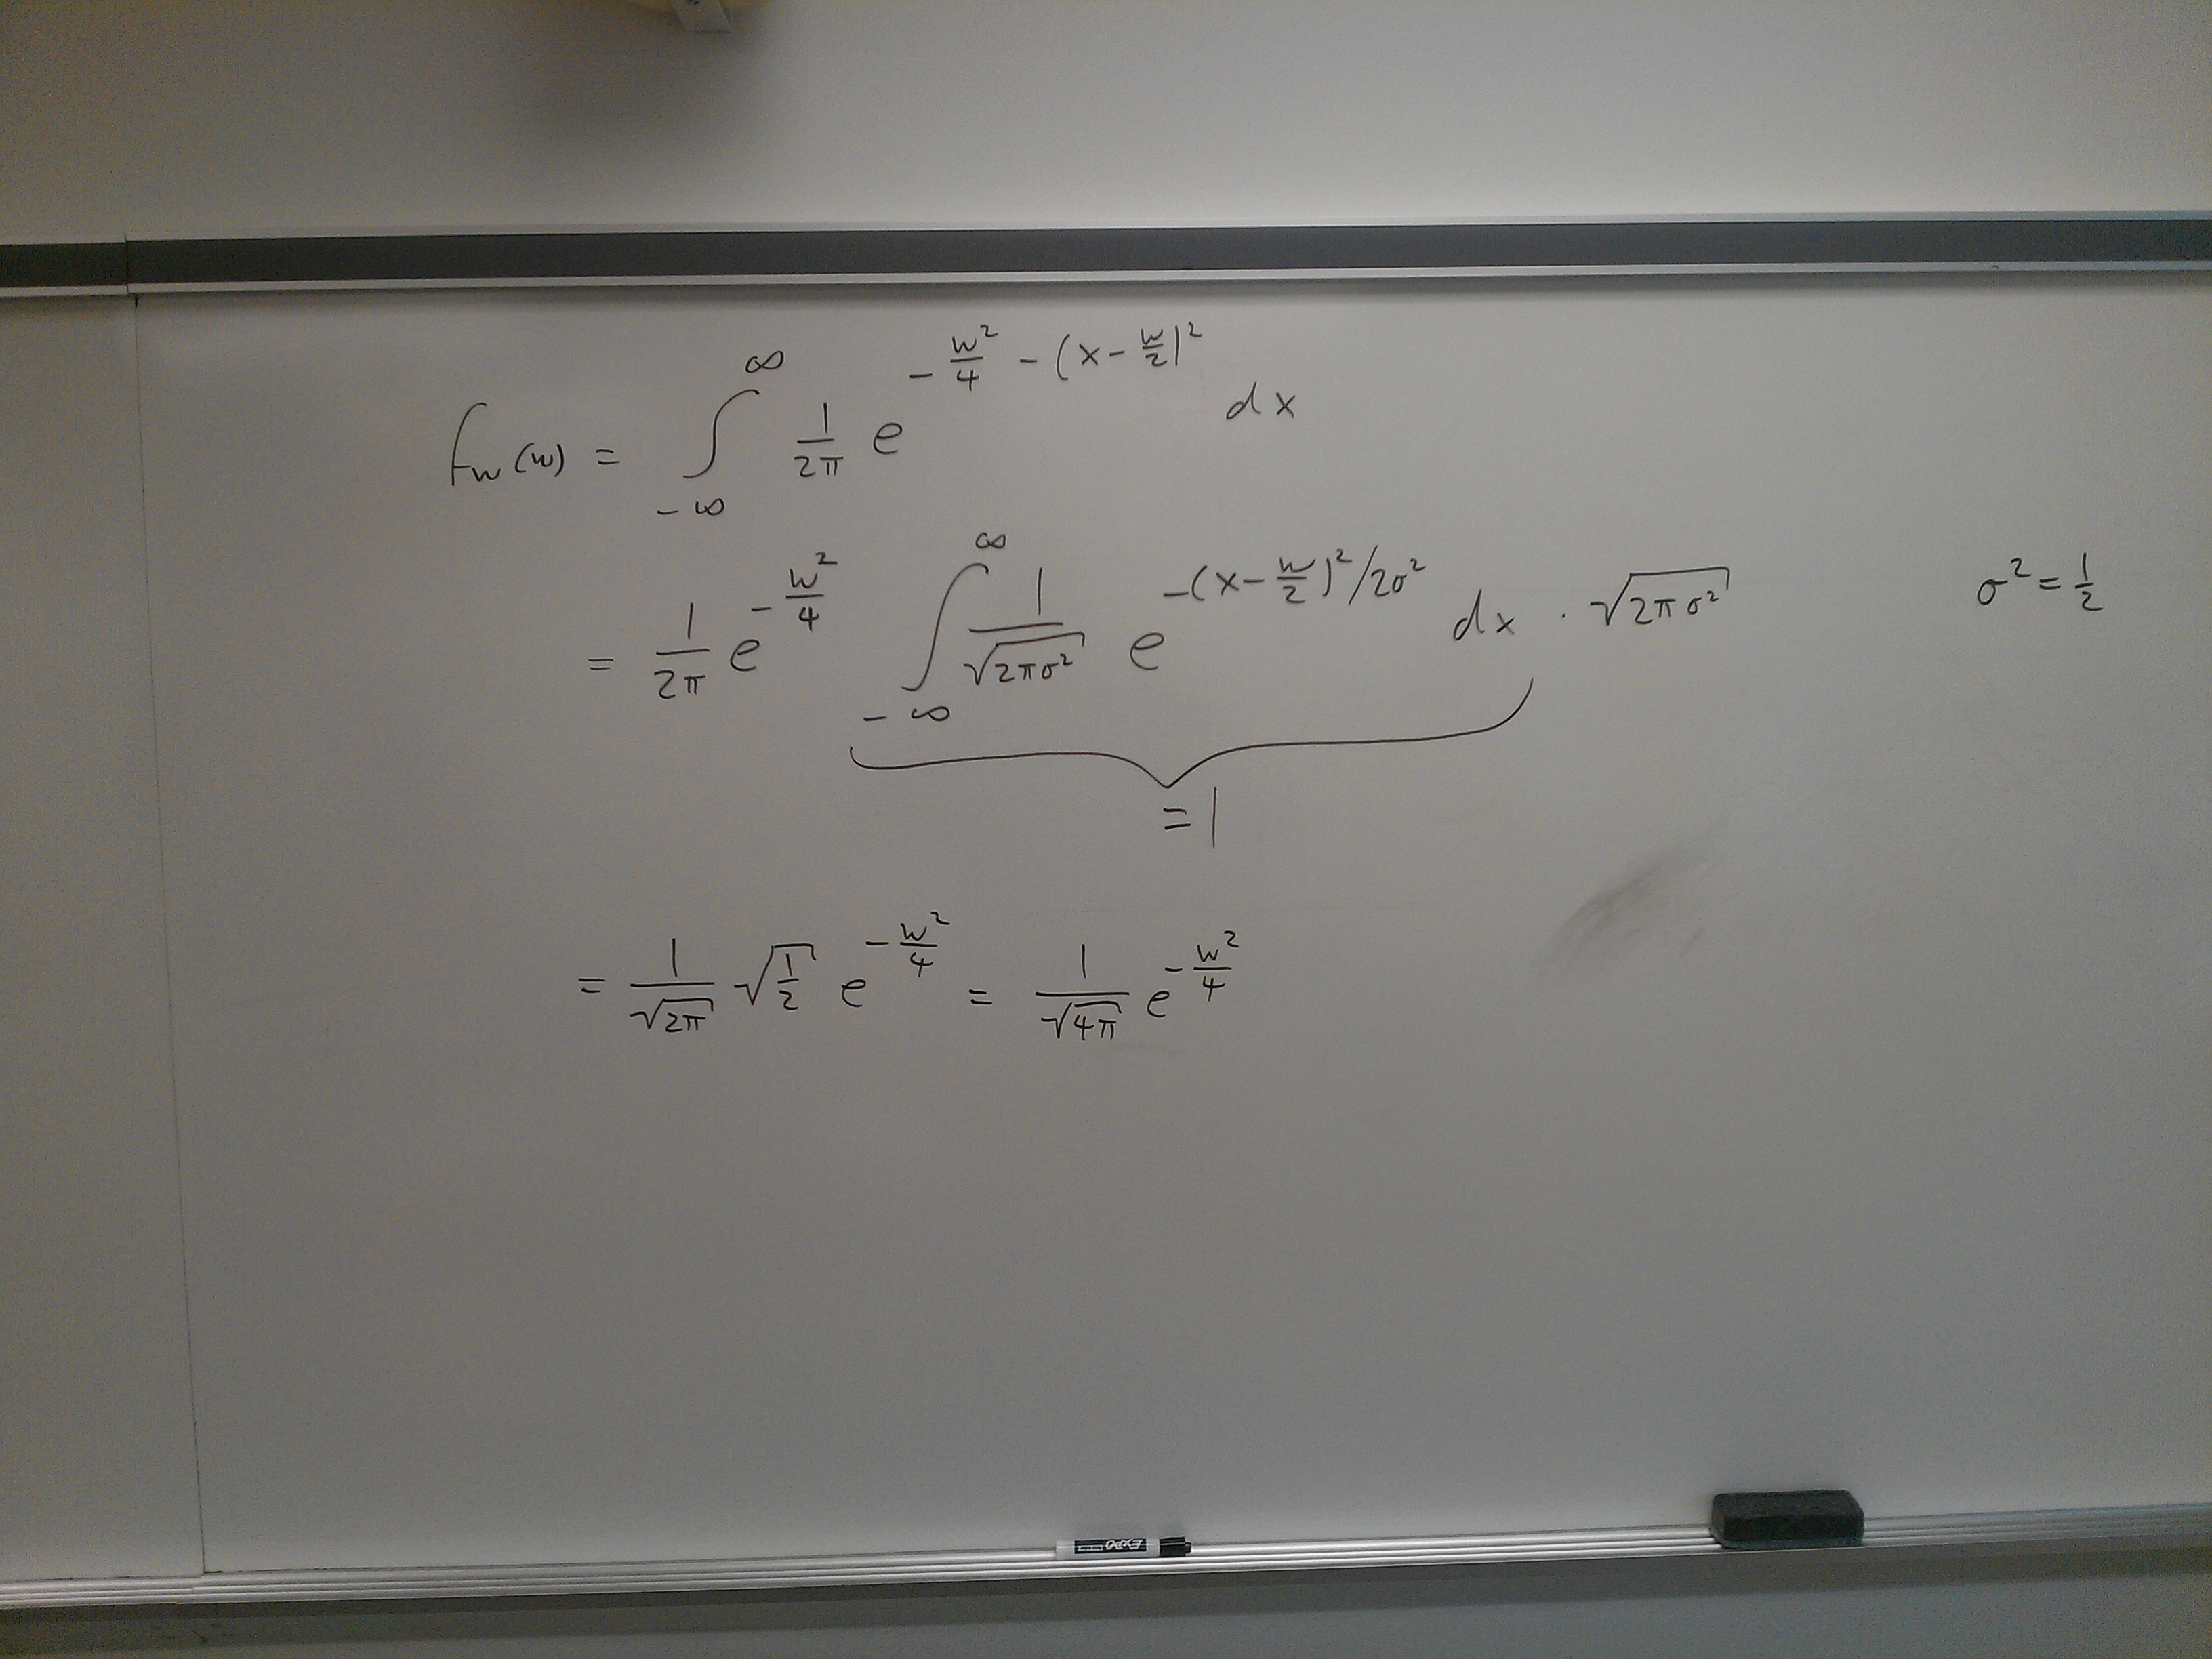 f_W(w) = ∫_{-∞}^{∞} \frac{1}{2π} e^{-\frac{w^2}{4} - (x - \frac{w}{2})^2} dx
= \frac{1}{2π} e^{-\frac{w^2}{4}} ∫_{-∞}^{∞} \frac{1}{\sqrt{2πσ^2}} e^{-(x - \frac{w}{2})^2/2σ^2} dx · \sqrt{2πσ^2} σ^2 = \frac{1}{2}
= 1
= \frac{1}{\sqrt{2π}} \sqrt{\frac{1}{2}} e^{-\frac{w^2}{4}} = \frac{1}{\sqrt{4π}} e^{-\frac{w^2}{4}}
EXPO